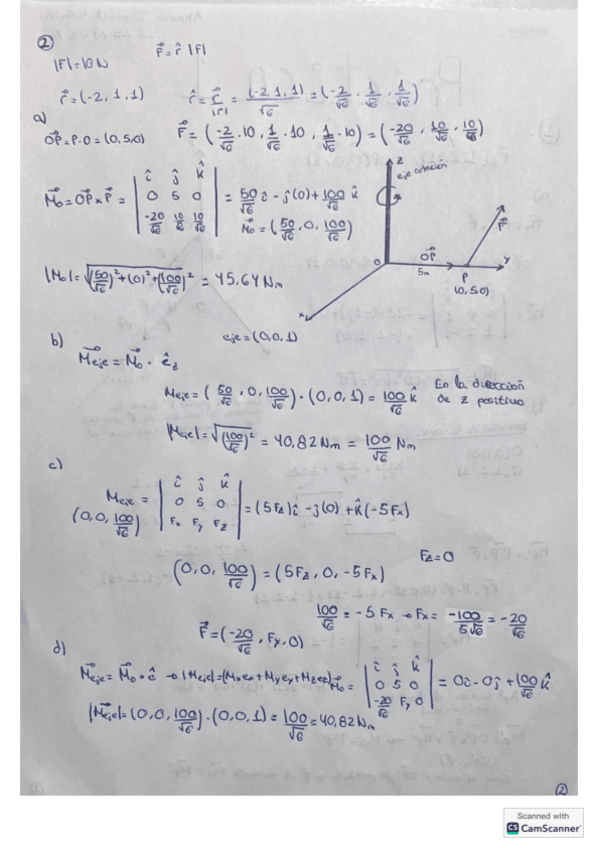 ②
|F| = 10 N
F⃗ = r̂ |F|
r⃗ = (-2, 1, 1)
r̂ = r⃗/|r| = (-2, 1, 1)/√6 = (-2/√6, 1/√6, 1/√6)
a)
OP⃗ = P-O = (0, 5, 0)
F⃗ = (-2/√6 · 10, 1/√6 · 10, 1/√6 · 10) = (-20/√6, 10/√6, 10/√6)
M⃗o = OP⃗ x F⃗ = | î ĵ k̂ |
| 0 5 0 |
| -20/√6 10/√6 10/√6 |
= 50/√6 î - j(0) + 100/√6 k̂
M⃗o = (50/√6, 0, 100/√6)
|Mo| = √((50/√6)² + (0)² + (100/√6)²) = 45,64 Nm
z
eje rotación
F⃗
O
OP⃗
5m
P
(0,5,0)
y
x
eje = (0,0,1)
b)
M⃗eje = M⃗o · ê_z
Meje = (50/√6, 0, 100/√6) · (0,0,1) = 100/√6 k̂
En la dirección
de z positivo
|Meje| = √((100/√6)²) = 40,82 Nm = 100/√6 Nm
c)
Meje = | î ĵ k̂ |
| 0 5 0 |
| Fx Fy Fz |
= (5Fz)î - j(0) + k̂(-5Fx)
(0, 0, 100/√6)
Fz = 0
(0, 0, 100/√6) = (5Fz, 0, -5Fx)
100/√6 = -5Fx → Fx = -100/5√6 = -20/√6
F⃗ = (-20/√6, Fy, 0)
d)
M⃗eje = M⃗o · ê → |Meje| = (Mxex + Myey + Mzez)
M⃗o = | î ĵ k̂ |
| 0 5 0 |
| -20/√6 Fy 0 |
= 0î - 0ĵ + 100/√6 k̂
|M⃗eje| = (0, 0, 100/√6) · (0,0,1) = 100/√6 = 40,82 Nm
②
Scanned with
CS CamScanner